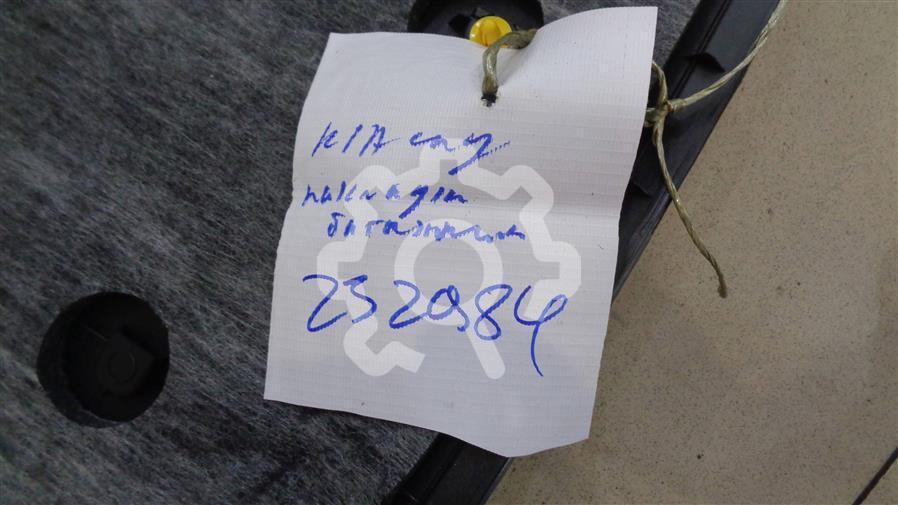 KIA ceed
накладка
багажника
2320984